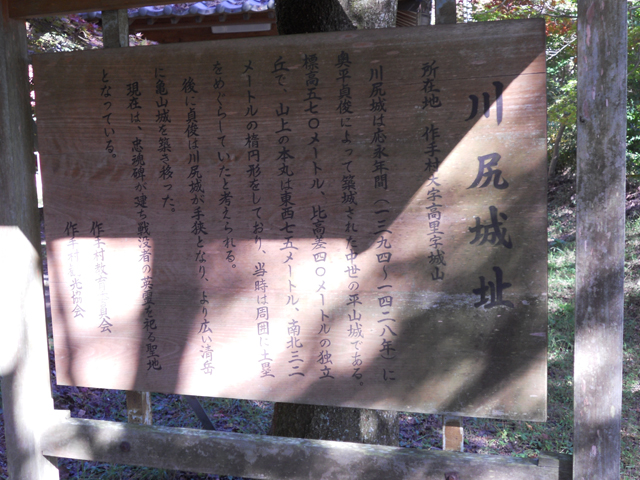 川尻城址
所在地　作手村大字高里字城山
川尻城は応永年間（一三九四〜一四二八年）に
奥平貞俊によって築城された中世の平山城である。
標高五七〇メートル、比高差四〇メートルの独立
丘で、山上の本丸は東西七五メートル、南北三二
メートルの楕円形をしており、当時は周囲に土塁
をめぐらしていたと考えられる。
後に貞俊は川尻城が手狭となり、より広い清岳
に亀山城を築き移った。
現在は、忠魂碑が建ち戦没者の英霊を祀る聖地
となっている。
作手村教育委員会
作手村観光協会